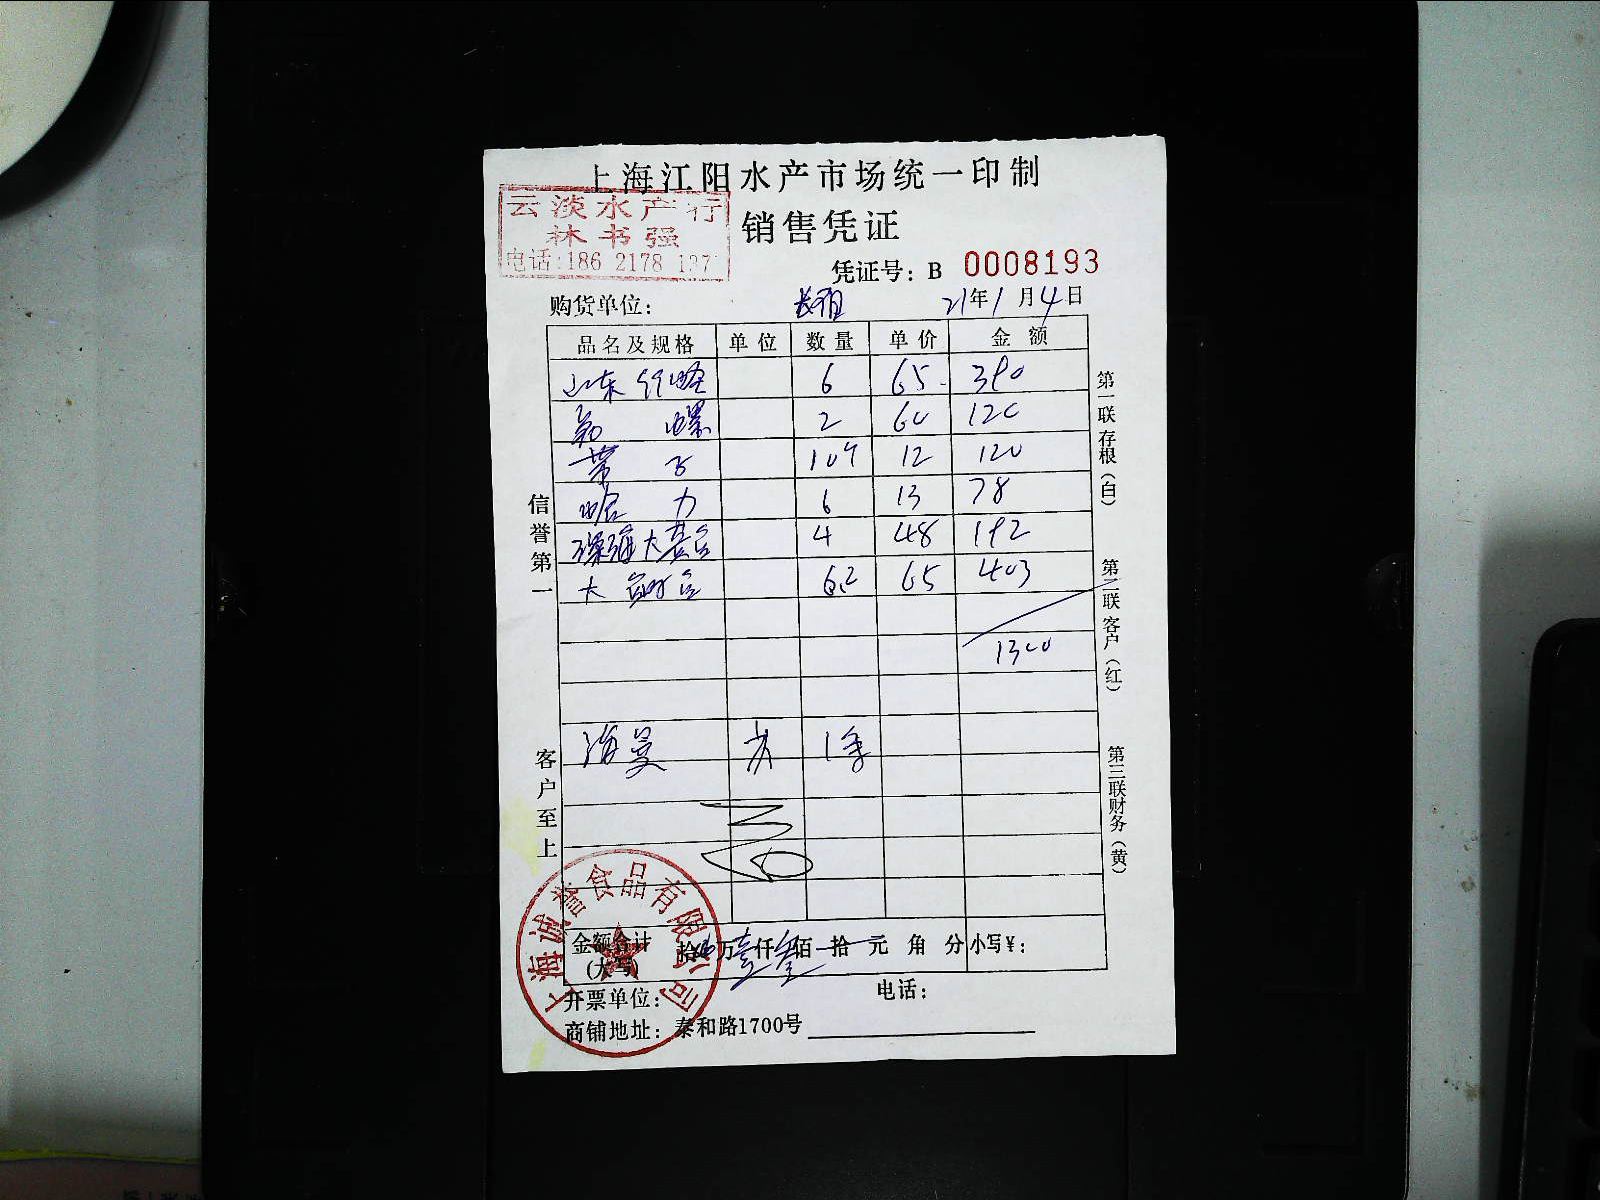 上海江阳水产市场统一印制
云淡水产行
林书强
电话:186 2178
销售凭证
凭证号: B 0008193
购货单位:
21年1月4日
品名及规格 单位 数量 单价 金额
山东 6 65 390
螺 2 60 120
带子 10 12 120
哈力 6 13 78
深海大 4 48 192
大 6.2 65 403
1300
海
第一联存根(白)
第二联客户(红)
第三联财务(黄)
信誉第一
客户至上
上海诚誉食品有限公司
金额合计(大写) 拾 万壹仟叁佰 拾 元 角 分 小写¥:
开票单位: 电话:
商铺地址: 泰和路1700号